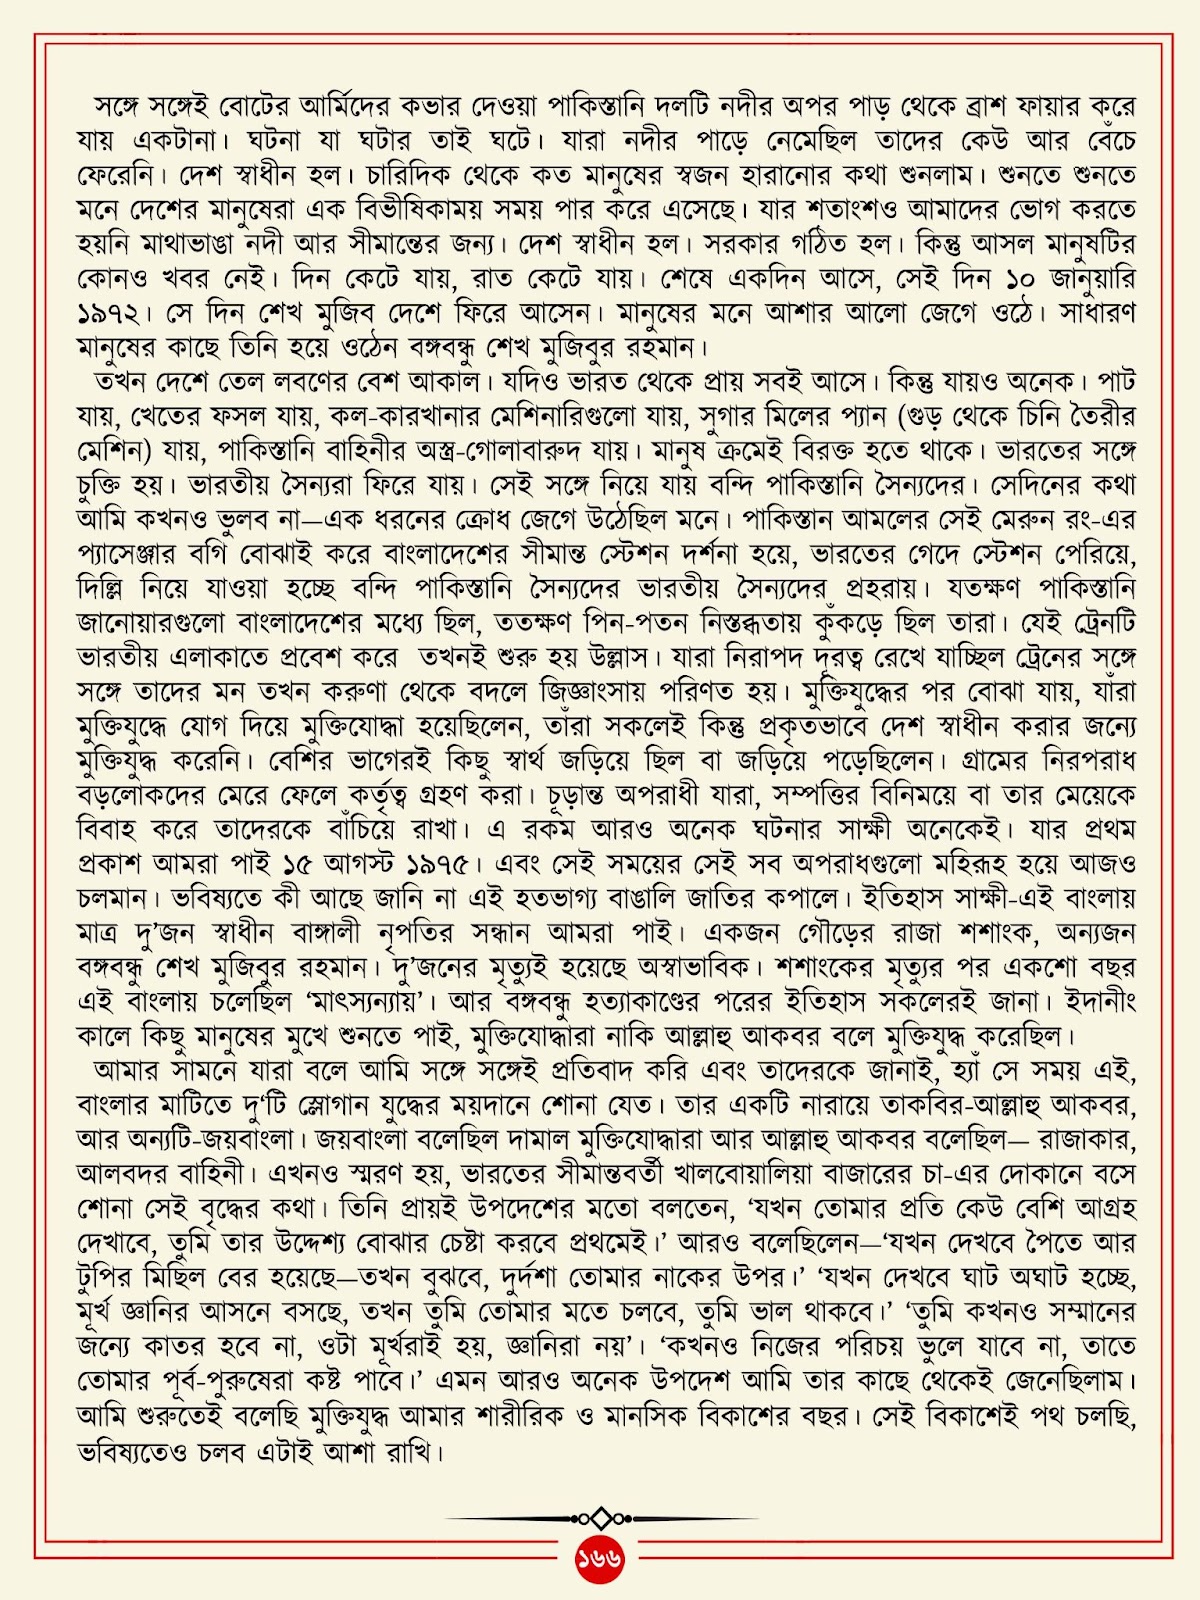 সঙ্গে সঙ্গেই বোটের আর্মিদের কভার দেওয়া পাকিস্তানি দলটি নদীর অপর পাড় থেকে ব্রাশ ফায়ার করে
যায় একটানা। ঘটনা যা ঘটার তাই ঘটে। যারা নদীর পাড়ে নেমেছিল তাদের কেউ আর বেঁচে
ফেরেনি। দেশ স্বাধীন হল। চারিদিক থেকে কত মানুষের স্বজন হারানোর কথা শুনলাম। শুনতে শুনতে
মনে দেশের মানুষেরা এক বিভীষিকাময় সময় পার করে এসেছে। যার শতাংশও আমাদের ভোগ করতে
হয়নি মাথাভাঙা নদী আর সীমান্তের জন্য। দেশ স্বাধীন হল। সরকার গঠিত হল। কিন্তু আসল মানুষটির
কোনও খবর নেই। দিন কেটে যায়, রাত কেটে যায়। শেষে একদিন আসে, সেই দিন ১০ জানুয়ারি
১৯৭২। সে দিন শেখ মুজিব দেশে ফিরে আসেন। মানুষের মনে আশার আলো জেগে ওঠে। সাধারণ
মানুষের কাছে তিনি হয়ে ওঠেন বঙ্গবন্ধু শেখ মুজিবুর রহমান।
তখন দেশে তেল লবণের বেশ আকাল। যদিও ভারত থেকে প্রায় সবই আসে। কিন্তু যায়ও অনেক। পাট
যায়, খেতের ফসল যায়, কল-কারখানার মেশিনারিগুলো যায়, সুগার মিলের প্যান (গুড় থেকে চিনি তৈরীর
মেশিন) যায়, পাকিস্তানি বাহিনীর অস্ত্র-গোলাবারুদ যায়। মানুষ ক্রমেই বিরক্ত হতে থাকে। ভারতের সঙ্গে
চুক্তি হয়। ভারতীয় সৈন্যরা ফিরে যায়। সেই সঙ্গে নিয়ে যায় বন্দি পাকিস্তানি সৈন্যদের। সেদিনের কথা
আমি কখনও ভুলব না—এক ধরনের ক্রোধ জেগে উঠেছিল মনে। পাকিস্তান আমলের সেই মেরুন রং-এর
প্যাসেঞ্জার বগি বোঝাই করে বাংলাদেশের সীমান্ত স্টেশন দর্শনা হয়ে, ভারতের গেদে স্টেশন পেরিয়ে,
দিল্লি নিয়ে যাওয়া হচ্ছে বন্দি পাকিস্তানি সৈন্যদের ভারতীয় সৈন্যদের প্রহরায়। যতক্ষণ পাকিস্তানি
জানোয়ারগুলো বাংলাদেশের মধ্যে ছিল, ততক্ষণ পিন-পতন নিস্তব্ধতায় কুঁকড়ে ছিল তারা। যেই ট্রেনটি
ভারতীয় এলাকাতে প্রবেশ করে তখনই শুরু হয় উল্লাস। যারা নিরাপদ দূরত্ব রেখে যাচ্ছিল ট্রেনের সঙ্গে
সঙ্গে তাদের মন তখন করুণা থেকে বদলে জিজ্ঞাংসায় পরিণত হয়। মুক্তিযুদ্ধের পর বোঝা যায়, যাঁরা
মুক্তিযুদ্ধে যোগ দিয়ে মুক্তিযোদ্ধা হয়েছিলেন, তাঁরা সকলেই কিন্তু প্রকৃতভাবে দেশ স্বাধীন করার জন্যে
মুক্তিযুদ্ধ করেনি। বেশির ভাগেরই কিছু স্বার্থ জড়িয়ে ছিল বা জড়িয়ে পড়েছিলেন। গ্রামের নিরপরাধ
বড়লোকদের মেরে ফেলে কর্তৃত্ব গ্রহণ করা। চূড়ান্ত অপরাধী যারা, সম্পত্তির বিনিময়ে বা তার মেয়েকে
বিবাহ করে তাদেরকে বাঁচিয়ে রাখা। এ রকম আরও অনেক ঘটনার সাক্ষী অনেকেই। যার প্রথম
প্রকাশ আমরা পাই ১৫ আগস্ট ১৯৭৫। এবং সেই সময়ের সেই সব অপরাধগুলো মহিরূহ হয়ে আজও
চলমান। ভবিষ্যতে কী আছে জানি না এই হতভাগ্য বাঙালি জাতির কপালে। ইতিহাস সাক্ষী-এই বাংলায়
মাত্র দু’জন স্বাধীন বাঙ্গালী নৃপতির সন্ধান আমরা পাই। একজন গৌড়ের রাজা শশাংক, অন্যজন
বঙ্গবন্ধু শেখ মুজিবুর রহমান। দু’জনের মৃত্যুই হয়েছে অস্বাভাবিক। শশাংকের মৃত্যুর পর একশো বছর
এই বাংলায় চলেছিল ‘মাৎস্যন্যায়’। আর বঙ্গবন্ধু হত্যাকাণ্ডের পরের ইতিহাস সকলেরই জানা। ইদানীং
কালে কিছু মানুষের মুখে শুনতে পাই, মুক্তিযোদ্ধারা নাকি আল্লাহু আকবর বলে মুক্তিযুদ্ধ করেছিল।
আমার সামনে যারা বলে আমি সঙ্গে সঙ্গেই প্রতিবাদ করি এবং তাদেরকে জানাই, হ্যাঁ সে সময় এই,
বাংলার মাটিতে দু‘টি স্লোগান যুদ্ধের ময়দানে শোনা যেত। তার একটি নারায়ে তাকবির-আল্লাহু আকবর,
আর অন্যটি-জয়বাংলা। জয়বাংলা বলেছিল দামাল মুক্তিযোদ্ধারা আর আল্লাহু আকবর বলেছিল— রাজাকার,
আলবদর বাহিনী। এখনও স্মরণ হয়, ভারতের সীমান্তবর্তী খালবোয়ালিয়া বাজারের চা-এর দোকানে বসে
শোনা সেই বৃদ্ধের কথা। তিনি প্রায়ই উপদেশের মতো বলতেন, ‘যখন তোমার প্রতি কেউ বেশি আগ্রহ
দেখাবে, তুমি তার উদ্দেশ্য বোঝার চেষ্টা করবে প্রথমেই।’ আরও বলেছিলেন—‘যখন দেখবে পৈতে আর
টুপির মিছিল বের হয়েছে—তখন বুঝবে, দুর্দশা তোমার নাকের উপর।’ ‘যখন দেখবে ঘাট অঘাট হচ্ছে,
মূর্খ জ্ঞানির আসনে বসছে, তখন তুমি তোমার মতে চলবে, তুমি ভাল থাকবে।’ ‘তুমি কখনও সম্মানের
জন্যে কাতর হবে না, ওটা মূর্খরাই হয়, জ্ঞানিরা নয়’। ‘কখনও নিজের পরিচয় ভুলে যাবে না, তাতে
তোমার পূর্ব-পুরুষেরা কষ্ট পাবে।’ এমন আরও অনেক উপদেশ আমি তার কাছে থেকেই জেনেছিলাম।
আমি শুরুতেই বলেছি মুক্তিযুদ্ধ আমার শারীরিক ও মানসিক বিকাশের বছর। সেই বিকাশেই পথ চলছি,
ভবিষ্যতেও চলব এটাই আশা রাখি।
১৬৬